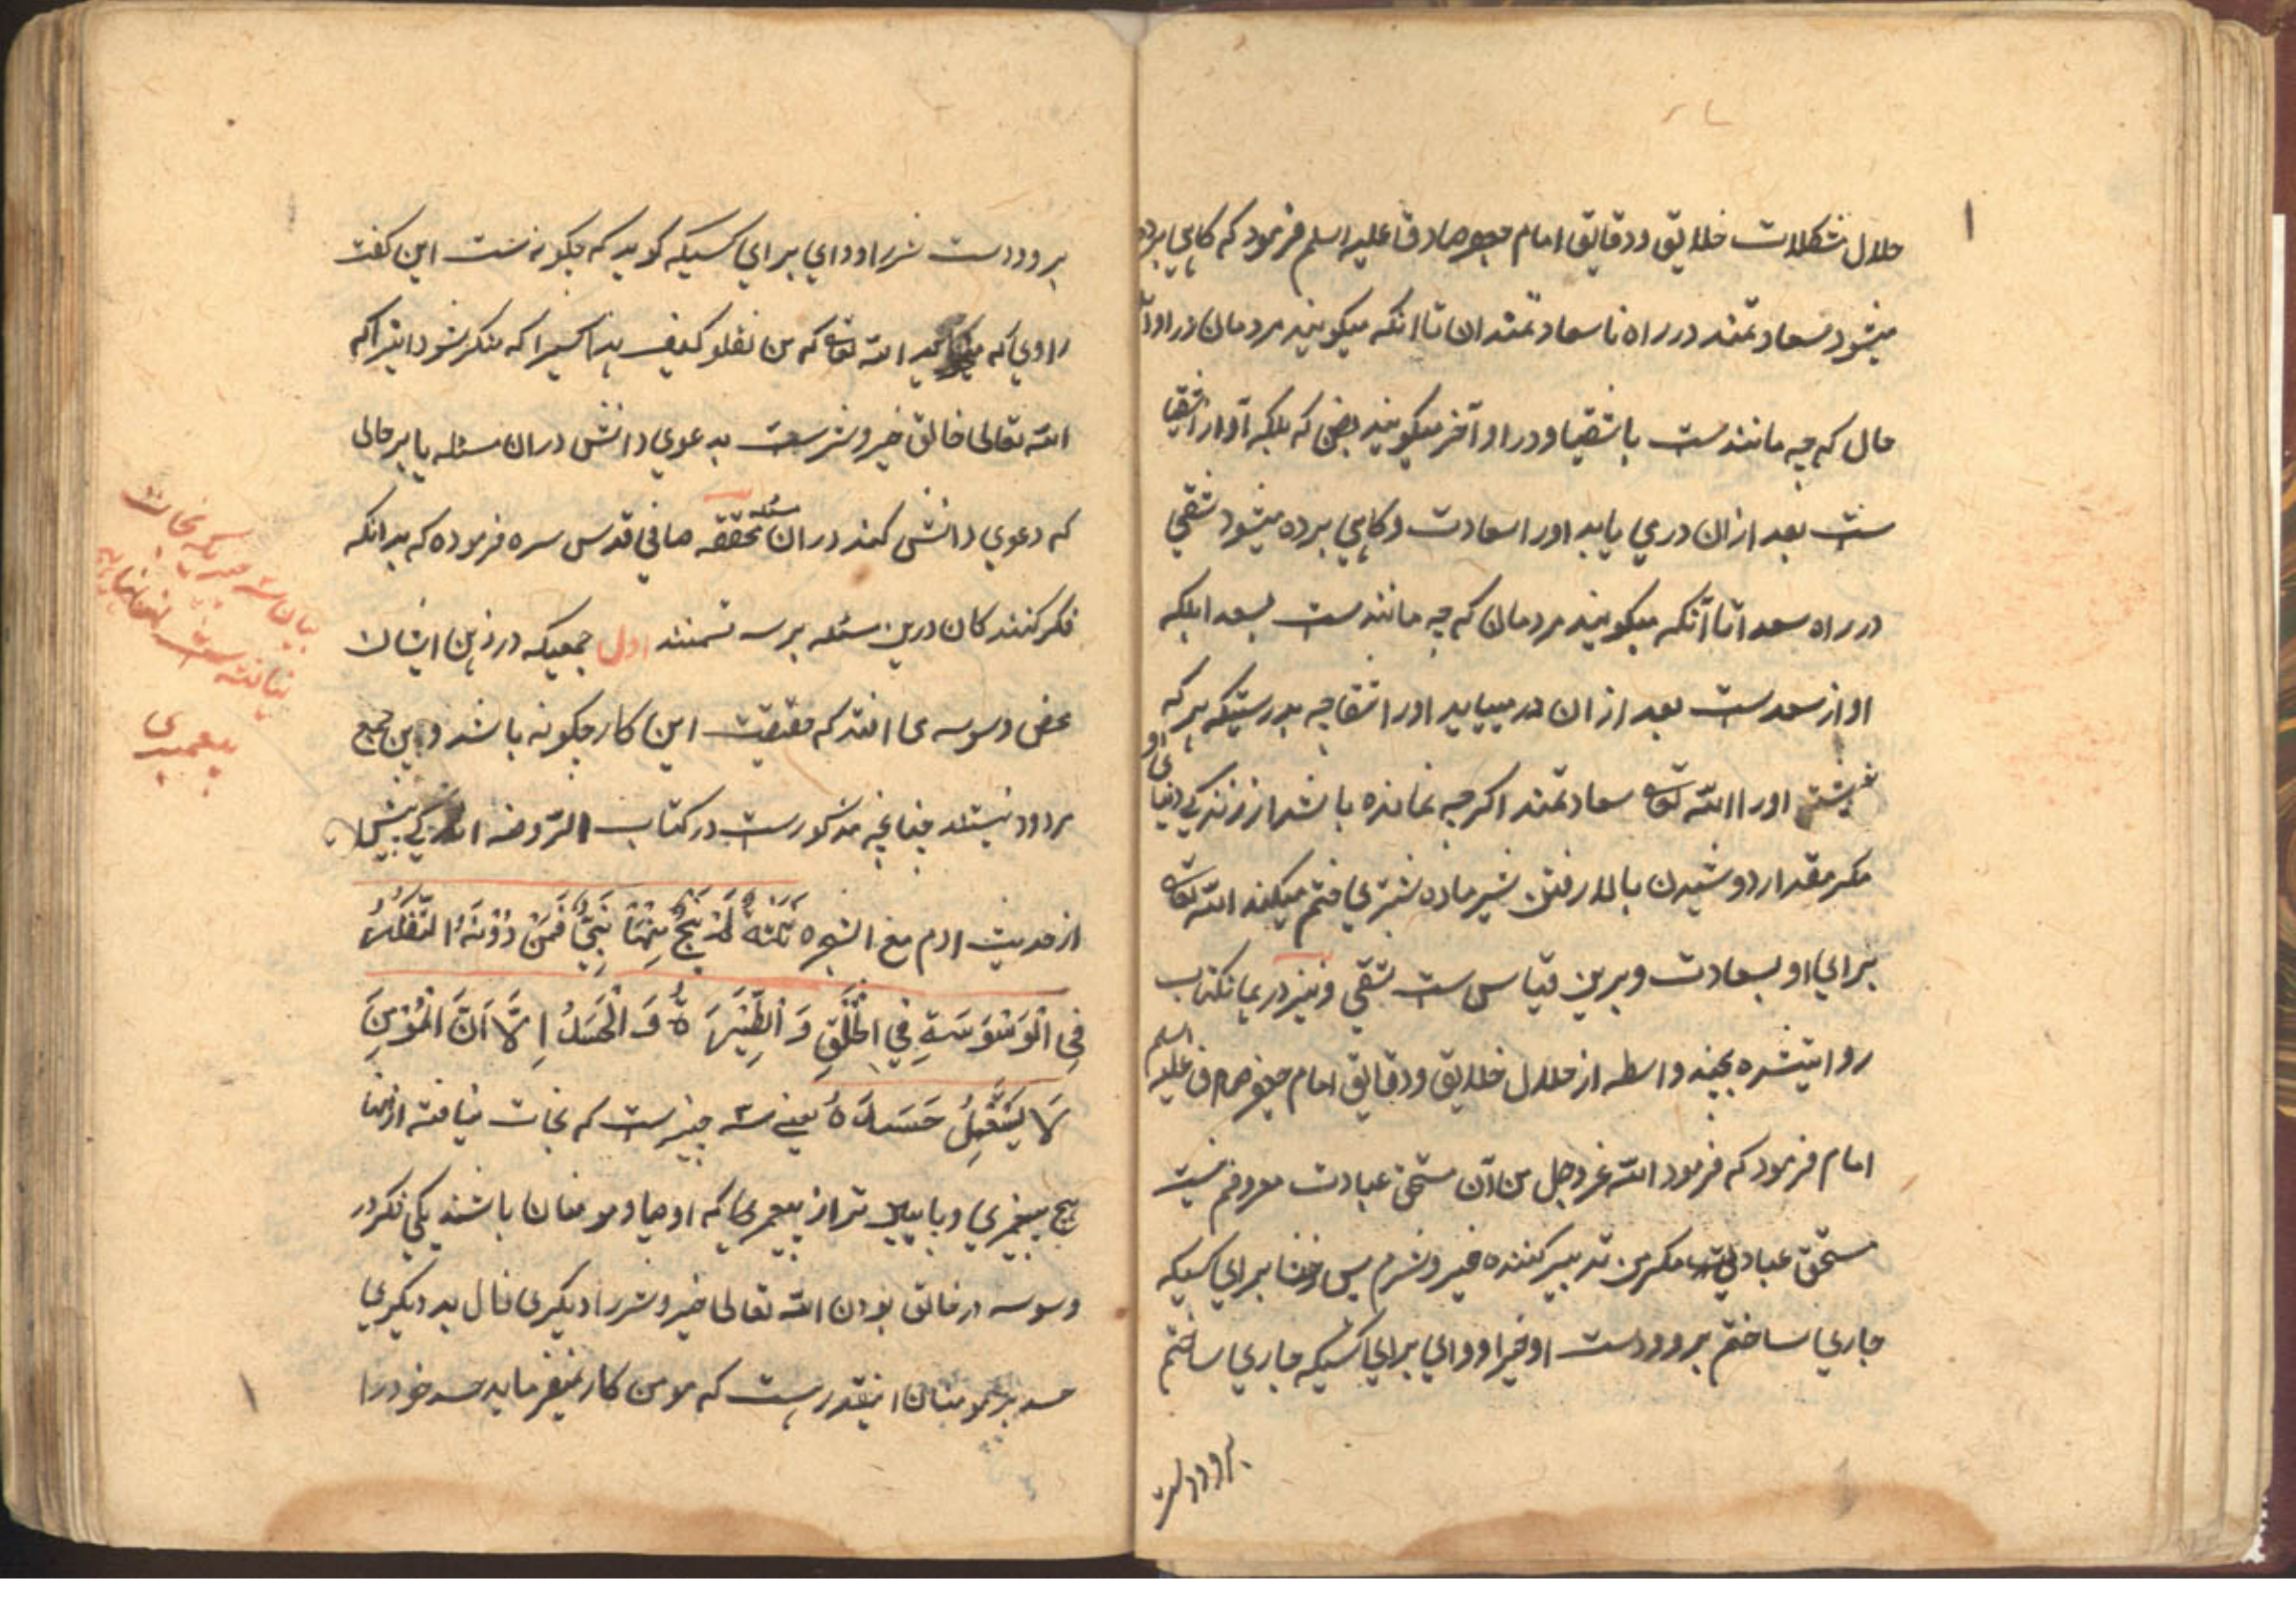 حلال مشکلات خلایق و دقایق امام جعفر صادق علیه السلم فرمود که کاهی برده
میشود سعادتمند در راه نا سعادتمندان تا آنکه میکویند مردمان در او آن
حال که چه مانندست باشقیا و در او آخر میکویند بعضی که بلکه او از اشقیا
ست بعد ازان درمی یابد اورا سعادت و کاهی برده میشود شقی
در راه سعدا تا آنکه میکویند مردمان که چه مانندست بسعدا بلکه
او از سعدست بعد ازان درمییابد اورا شقا چه بدرستیکه هر که
نوشته اورا الله تعالی سعادتمند اکرچه نمانده باشد از زندکی دنیای او
مکر مقدار دوشیدن بالا رفتن شیر ماده شتری ختم میکند الله تعالی
برای او بسعادت و برین قیاس ست شقی و نیز در همانکتاب
روایتشده بچند واسطه از حلال خلایق و دقایق امام جعفر صادق علیه السلم
امام فرمود که فرمود الله عز وجل من آن مستحق عبادت معروفم نیست
مستحق عبادت مکر من تدبیر کننده خیر و شرم پس خوشا برای کسیکه
جاری ساختم بر دو دست او خیرا و وای برای کسیکه جاری ساختم
بر دو دست
بر دو دست شررا و وای برای کسیکه کوید که چکونه ست این کفت
راوی که میخواهد الله تعالی که من یقلو کیف هذا کسیرا که منکر شود اینرا که
الله تعالی خالق خیر و شرست بدعوی دانش دران مسئله یا بر حالی
که دعوی دانش کند دران مسئله محققه صافی قدس سره فرموده که بدانکه
فکر کنندکان درین مسئله بر سه قسمند اول جمعیکه در ذهن ایشان
محض وسوسه می افتد که حقیقت این کار چکونه باشد و این جمع
مردود نیستند چنانچه مذکورست در کتاب الروضه اندکی پیش
از حدیث ادم مع الشجره ثلثة لم ینج منها نبی فمن دونه التفکر
في الوسوسة في الخلق و الطیرة و الحسد الا ان المؤمن
لا یستعمل حسده یعنی سه چیزست که نجات نیافته از انها
هیچ پیغمبری و پایین تر از پیغمبری که اوصیا و مومنان باشند یکی فکر در
وسوسه در خالق بودن الله تعالی خیر و شررا دیکری فال بد دیکری
حسد بر مومنان اینقدر هست که مومن کار نمیفرماید حسد خود را
بیان سه چیز که نجات
نیافته ست از انها
پیغمبری